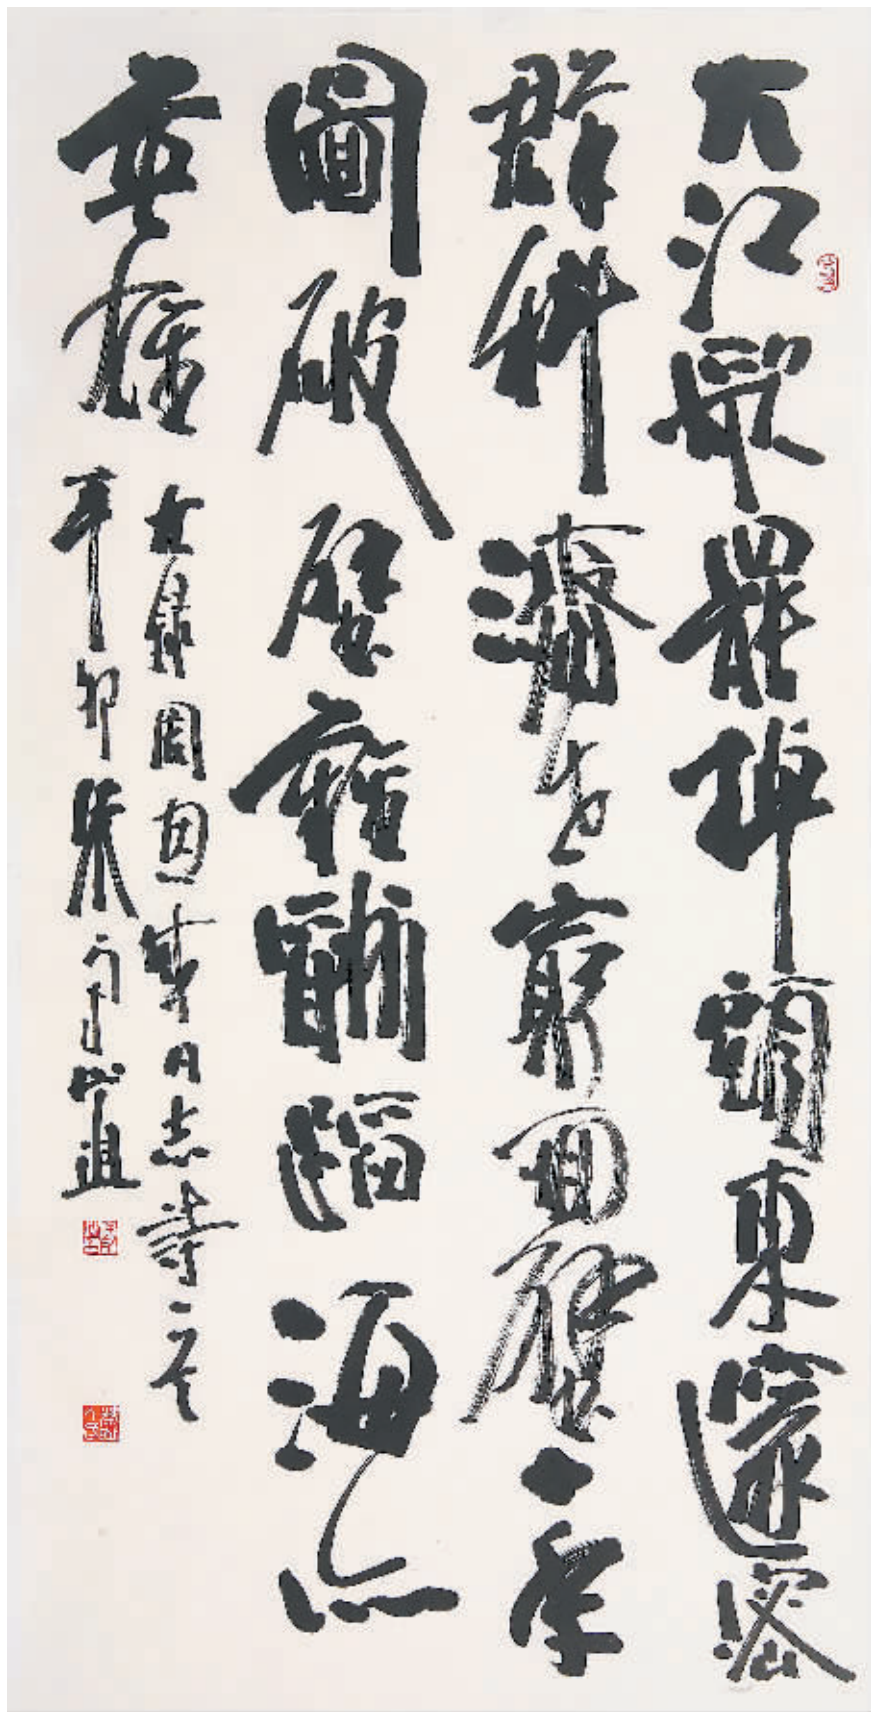 大江歌罷掉頭東邃密
群科濟世窮面壁十年
圖破壁難酬蹈海亦
英雄
錄周恩來同志詩一首
辛卯朱守道